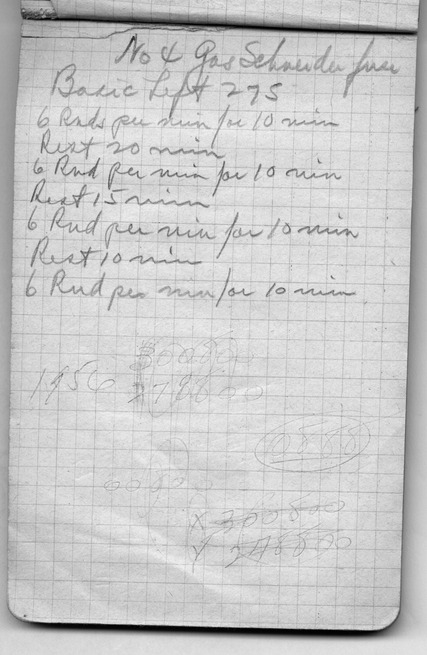 No 4 Gas Schneider fuse
Basic Left 275
6 Rnds per min for 10 min
Rest 20 min
6 Rnd per min for 10 min
Rest 15 min
6 Rnd per min for 10 min
Rest 10 min
6 Rnd per min for 10 min
1956
X 300800
Y